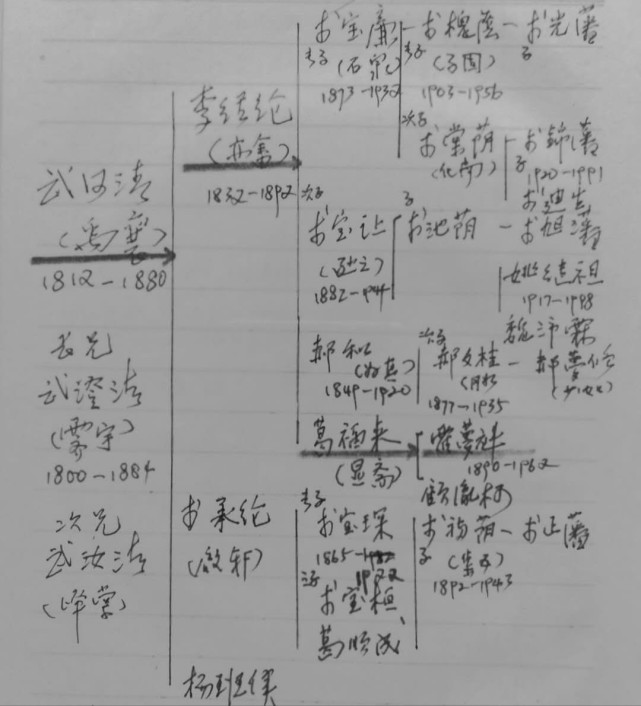 武河清
(禹襄)
1812-1880
长兄
武澄清
(霁宇)
1800-1884
次兄
武汝清
(峰堂)
李经纶
(亦畬)
1832-1892
李承纶
(启轩)
杨班侯
长子
李宝廉
(石泉)
1873-1932
次子
李宝让
(逊之)
1882-1944
郝和
(为真)
1849-1920
葛福来
(显斋)
长子
李宝琛
1865-1922
李宝桓
葛顺成
长子
李槐荫
(子固)
1903-1956
次子
李棠荫
(化南)
子
李池荫
次子
郝文桂
(月如)
1877-1935
1890-1962
子
李福荫
(集五)
1892-1943
子
李光藩
子
李锦藩
1920-1991
李迪生
李旭藩
姚继祖
1917-1998
魏沛霖
(少如)
李正藩